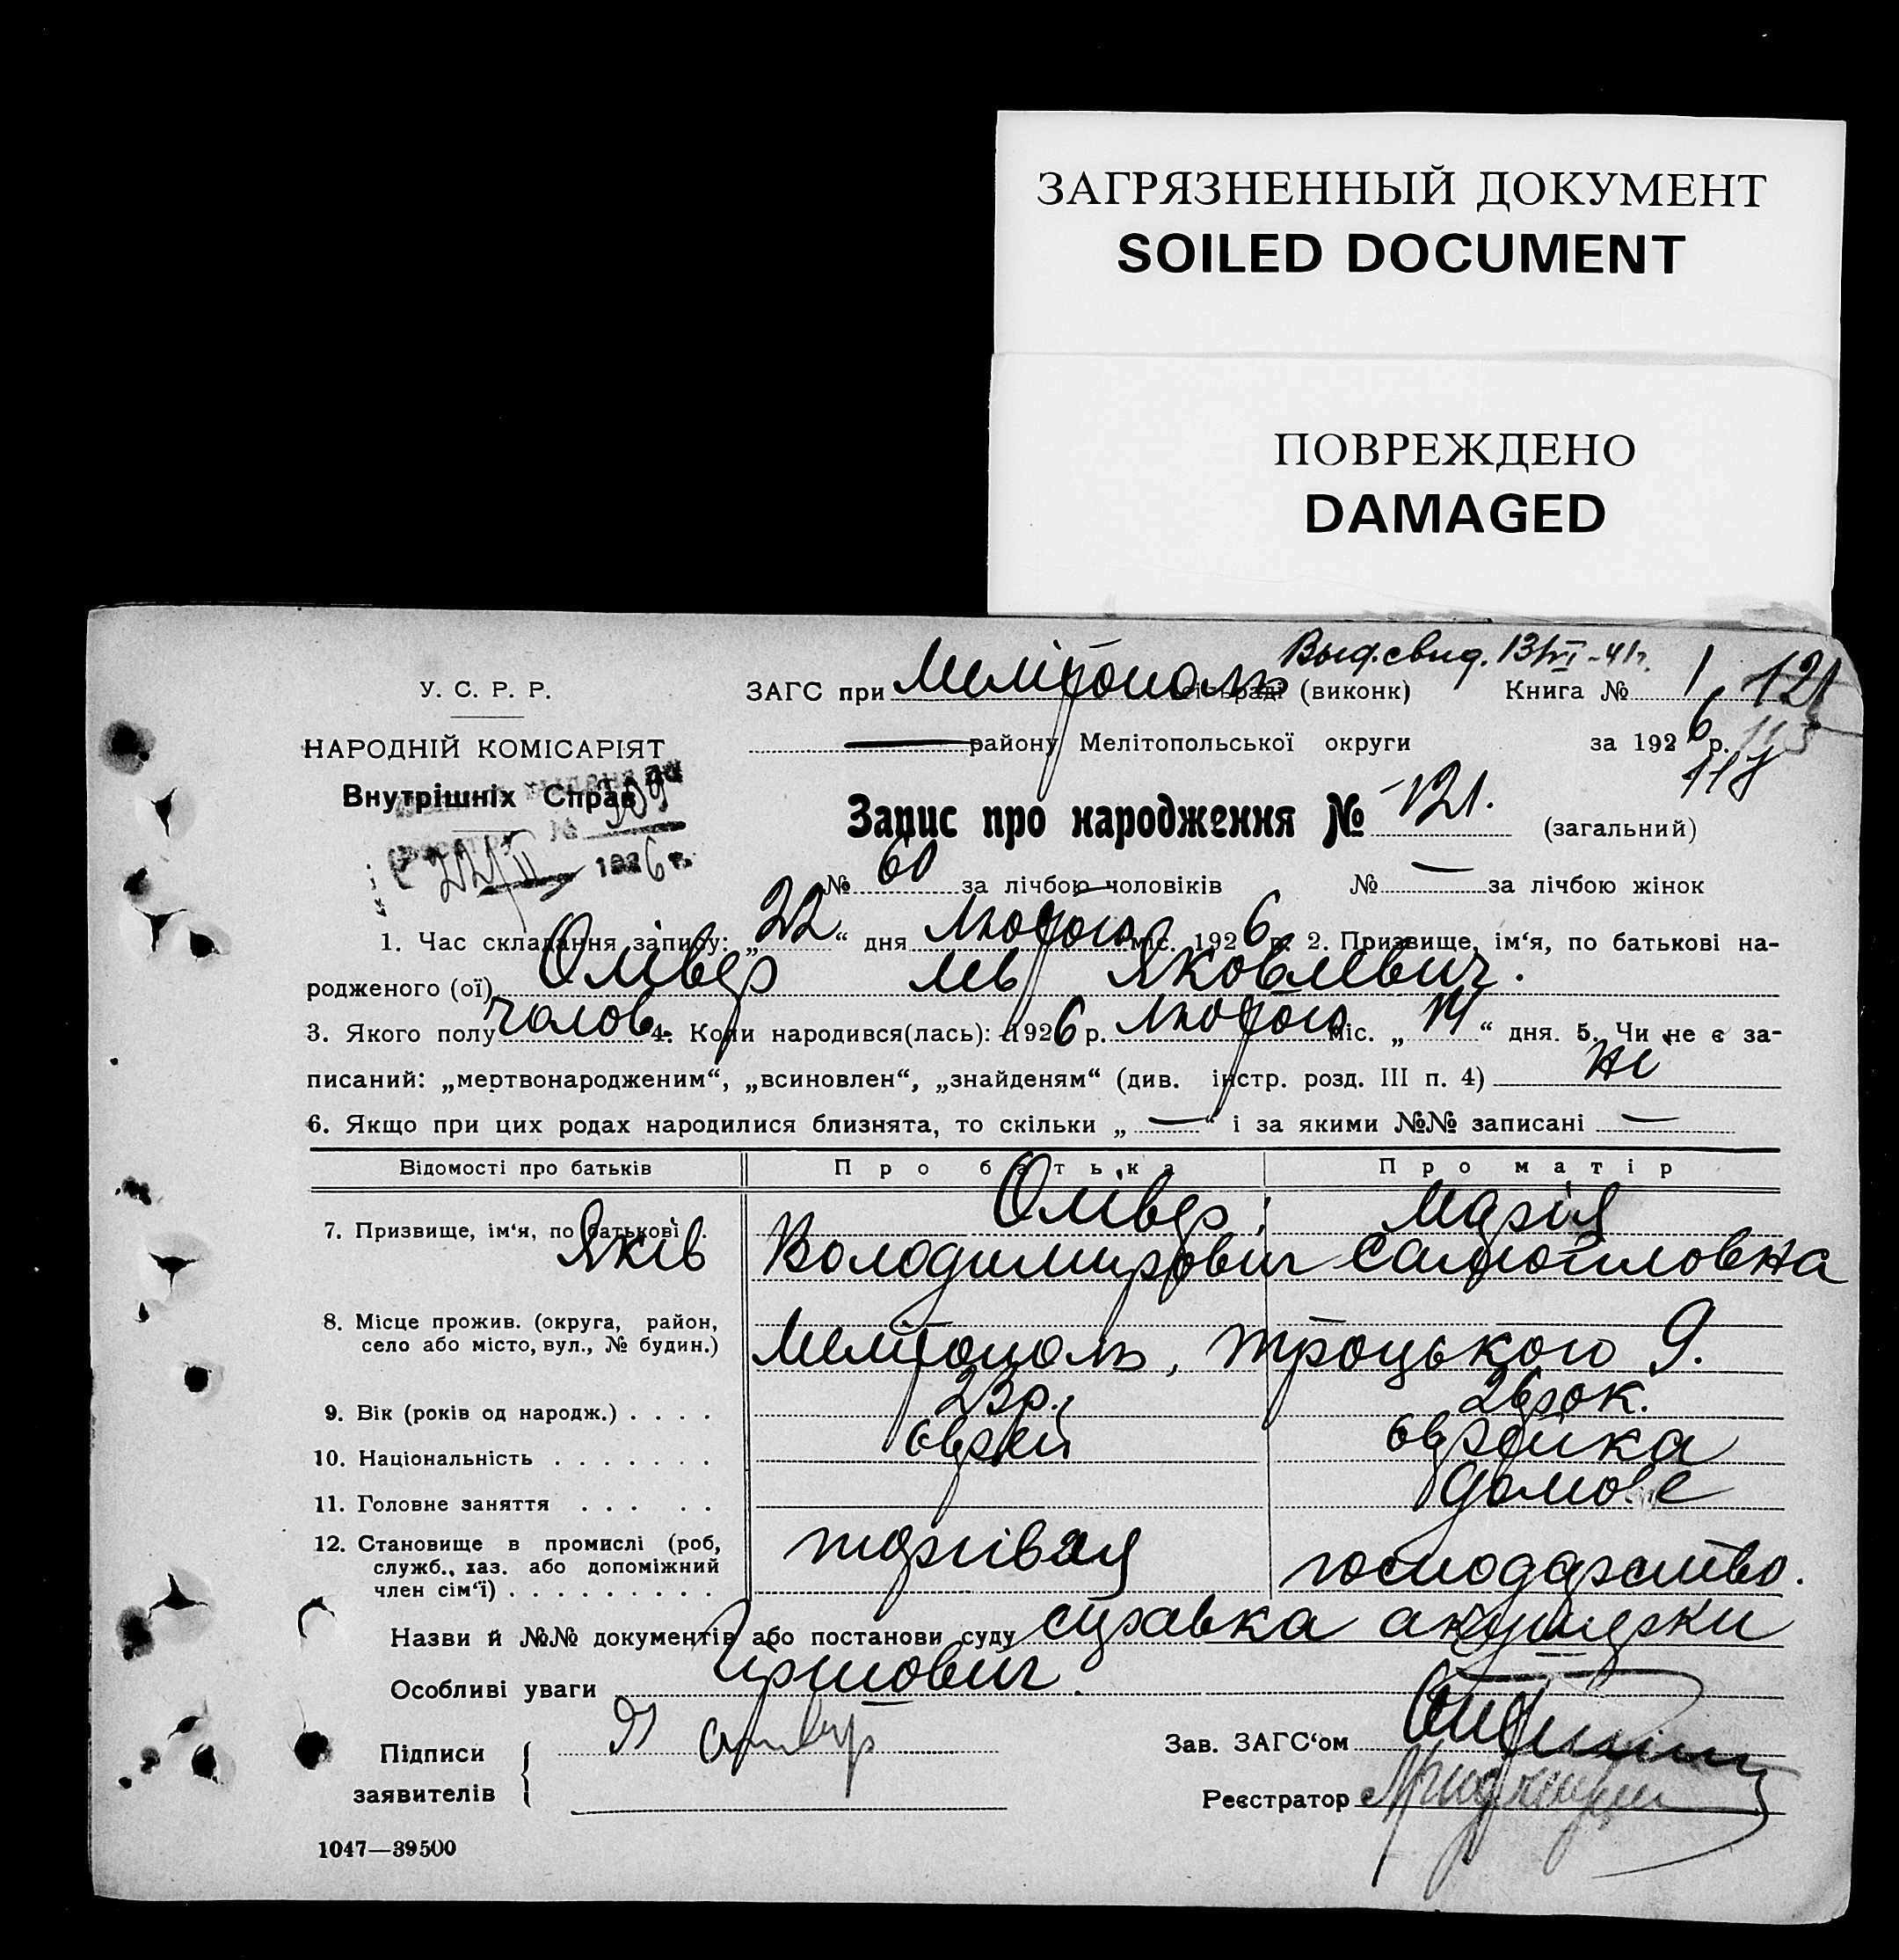 ЗАГРЯЗНЕННЫЙ ДОКУМЕНТ
SOILED DOCUMENT
ПОВРЕЖДЕНО
DAMAGED
Выд. свид. 13/VI-41г.
У. С. Р. Р.
ЗАГС при Мелітополь (виконк) Книга № 1 121
НАРОДНІЙ КОМІСАРІЯТ
району Мелітопольської округи за 1926 р. 113
118
Внутрішніх Справ
Запис про народження № 121. (загальний)
№
22/II 1926 г.
№ 60 за лічбою чоловіків № — за лічбою жінок
1. Час складання запису: „22“ дня Лютого міс. 1926 р. 2. Призвище, ім‘я, по батькові на-
родженого (ої) Олівер Лев Яковлевич.
3. Якого полу чолов. 4. Коли народився(лась): 1926 р. Лютого міс. „14“ дня. 5. Чи не є за-
писаний: „мертвонародженим“, „всиновлен“, „знайденям“ (див. інстр. розд. III п. 4) ні
6. Якщо при цих родах народилися близнята, то скільки „—“ і за якими №№ записані —
Відомості про батьків Про батька Про матір
7. Призвище, ім‘я, по батькові Олівер Марія
Яків Володимирович Самойловна
8. Місце прожив. (округа, район,
село або місто, вул., № будин.) Мелітополь, Троцького 9.
9. Вік (років од народж.) . . . . 23 р. 26 рок.
10. Національність . . . . . . . єврей єврейка
11. Головне заняття . . . . . домове
12. Становище в промислі (роб, торгівля господарство.
служб., хаз. або допоміжний
член сім‘ї) . . . . . . . . .
Назви й №№ документів або постанови суду справка акушерки
Особливі уваги Гіршович.
Підписи
заявителів
Я Олівер
Зав. ЗАГС‘ом
Реєстратор
1047—39500